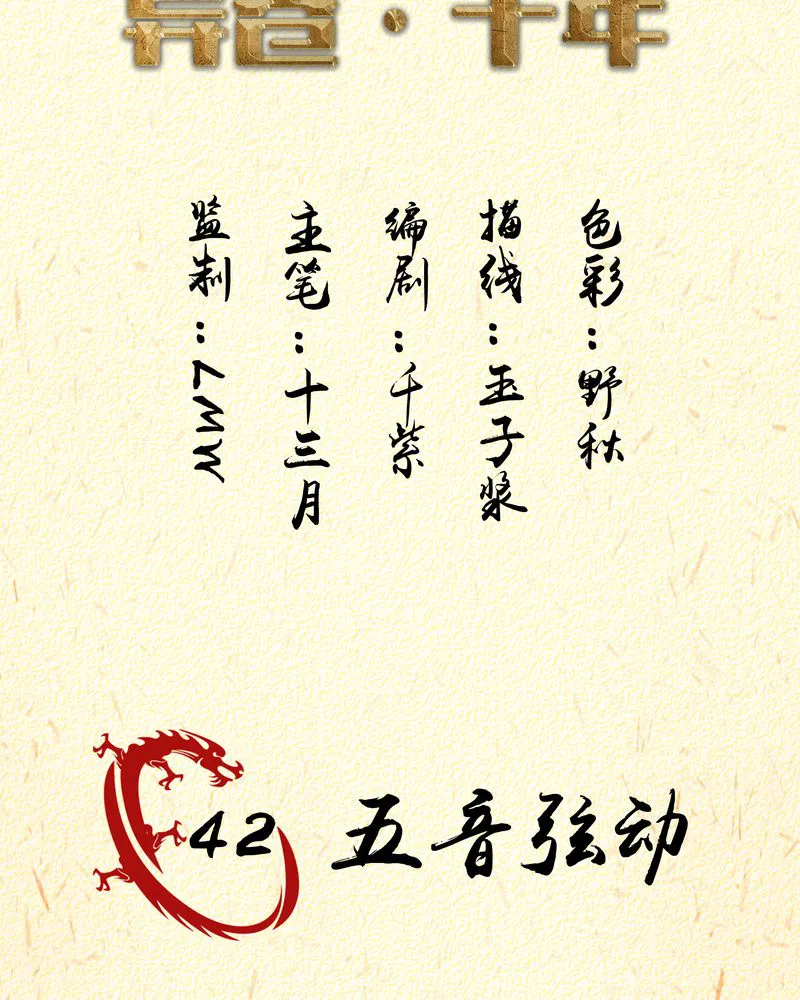 千年
监制：
主笔：十三月
编剧：千紫
描线：玉子浆
色彩：野秋
42 五音弦动